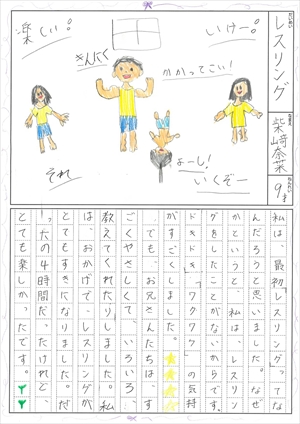 だいめい
レスリング
なまえ
柴﨑奈菜
ねんれい
9才
楽しい。
いけー。
きんにく
かかってこい!
それ
よーし!
いくぞー
私は、最初「レスリングってな
んだろうと思いました。なぜ
かというと、私は、レスリン
グをしたことがないからです。
ドキドキ、ワクワクの気持
がすごくしました。
でも、お兄さんたちは、す
ごくやさしくて、いろいろ、
教えてくれたりしました。私
は、おかげで、レスリングが
とてもすきになりました。だ
った4時間だったけれど、
とても楽しかったです。